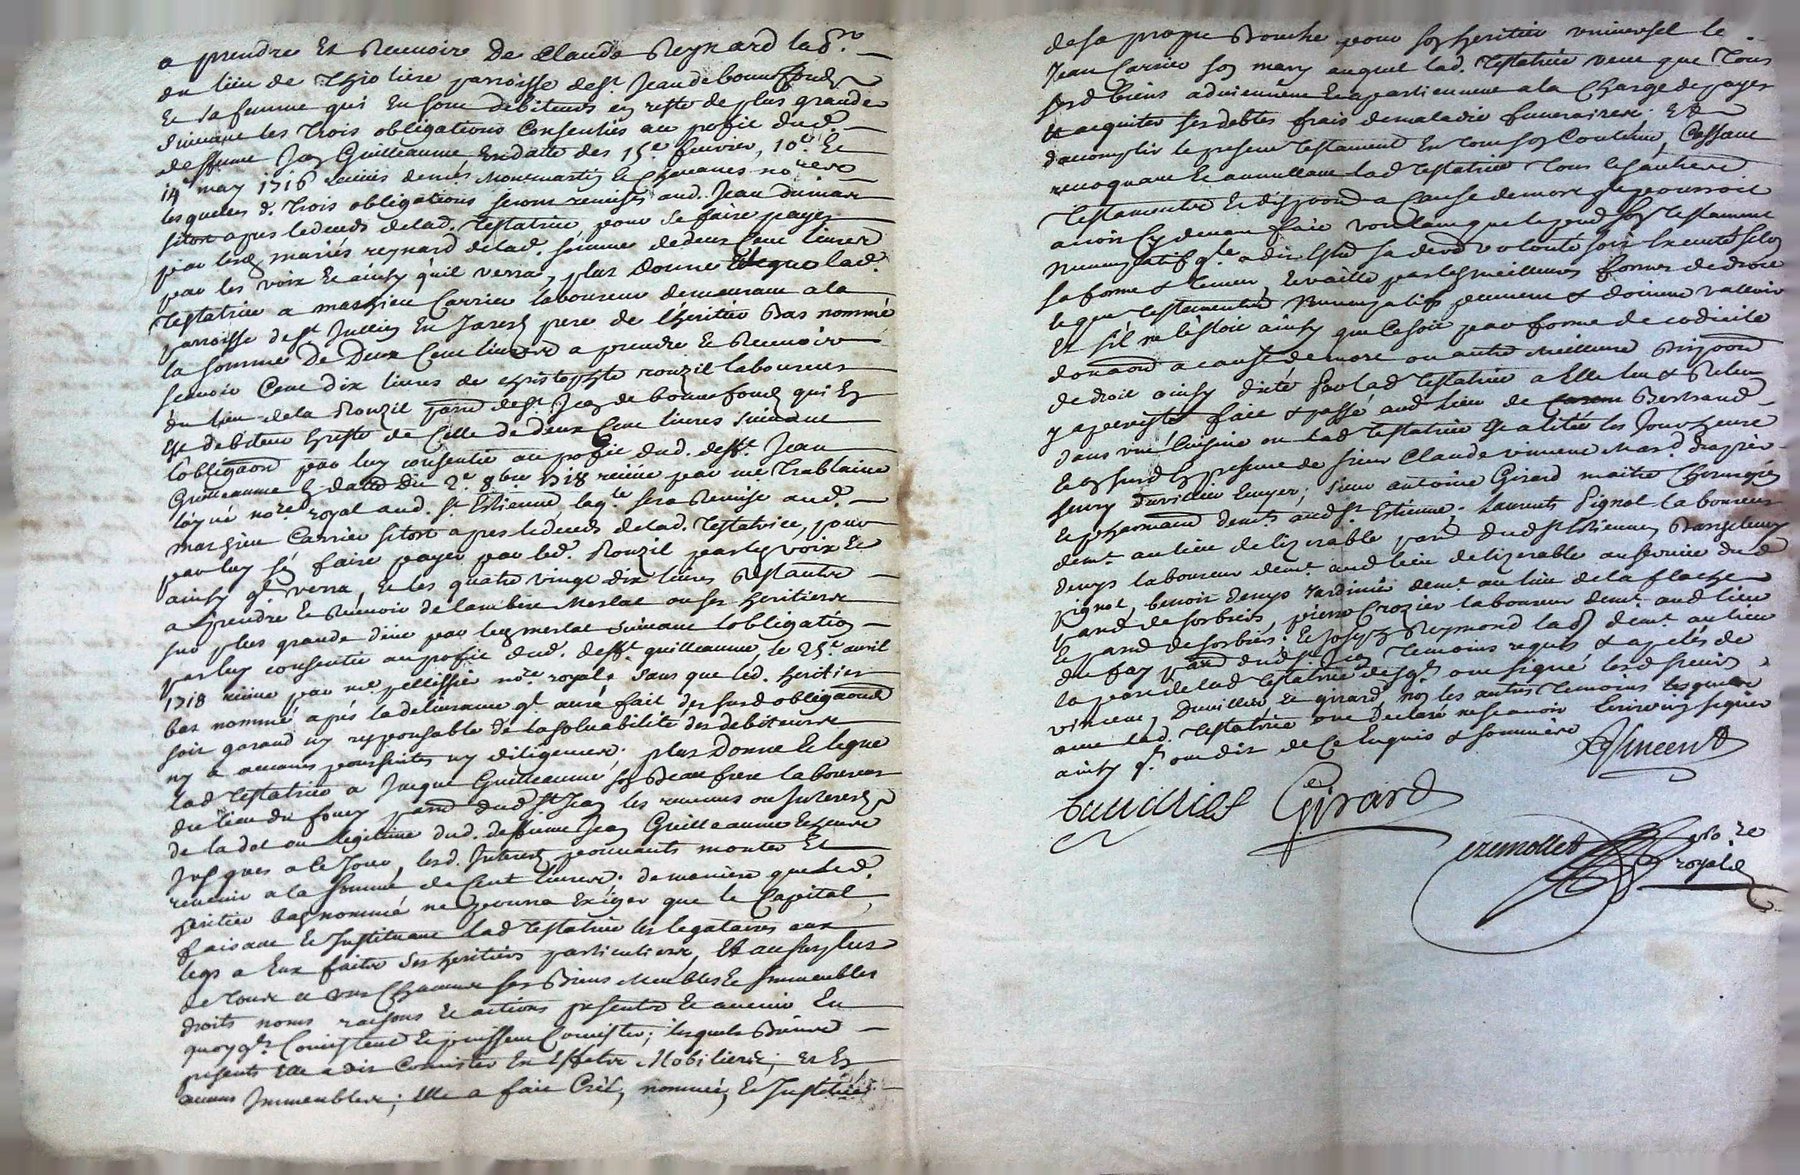 a prendre et Recevoir De Claude Reynard lab.r
du lieu de Thioliere parroisse de st. Jean de bonnefonds
et sa femme qui en sont debiteurs en reste de plus grande
suivant les trois obligations consenties au profit dud.
deffunt Jean Guilleaume en datte des 15e fevrier, 10e et
14e may 1716 receues de mes. Montmartin et Chavanes no.res
lesquelles d. trois obligations seront remises aud. Jean
apres le deceds de lad. Testatrice, pour se faire payer
par lesd. mariés reynard de lad. somme de deux cent livres
par les voix et ainsy qu'il verra, plus Donne et legue lad.
Testatrice a Mathieu Carrier laboureur demeurant a la
parroisse de st. Jullien en Jarest pere de l'heritier Bas nommé
la somme De Deux Cent livres a prendre et Recevoir
scavoir Cent dix livres de Christophle rouzil laboureur
du lieu de la Rouzil parr. de st. Jean de bonnefonds qui en
est debiteur en reste de Celle de deux Cent livres suivant
l'obligaon par luy consentie au profit dud. defft. Jean
Guilleaume en datte du 2e 8bre 1718 receue par me. Trablaine
no.re royal aud. st. Estienne, laq.le sera Remise aud.
mathieu Carrier sitost apres le deceds de lad. Testatrice, pour
par luy s'en faire payer par led. Rouzil par les voix et
ainsy q.l verra, et les quatre vingt dix livres Restantes
a prendre et Recevoir de lambert Merlat ou ses heritiers
sur plus grande deue par led. merlat suivant l'obligation
par luy consentie au profit dud. defft. guilleaume, le 25e avril
1718 receue par me. pellissier no.re royal, sans que led. heritier
bas nommé après la delivrance q.l aura fait des susd. obligaons
soit garand ny responsable de la solvabilité des debiteurs
ny a aucunes poursuites ny diligences. plus Donne et legue
lad. Testatrice a Jacque Guilleaume son Beau frere laboureur
du lieu du fouey parr. dud. st. Jean les revenus ou Interests
de la dot ou legitime dud. deffunt Jean Guilleaume
jusques a ce Jour, lesd. Interests pouvants monter et
revenir a la somme de Cent livres. de maniere que led.
heritier bas nommé ne pourra Exiger que le Capital,
faisant et Instituant lad. Testatrice les legataires aux
legs a Eux faits ses heritiers particuliers, Et au surplus
de tous et uns Chacuns ses Biens Meubles et Immeubles
droits noms raisons et actions presents et avenir En
quoy q.ls Consistent et puissent Consister; lesquels Biens
presents Elle a dit Consister En Effets Mobiliers; et En
aucuns Immeubles; Elle a fait Créé, nommé, et Institué
de sa propre Bouche pour son heritier universel le
Jean Carrier son mary auquel lad. Testatrice veut que tous
sesd. biens adviennent et apartiennent a la Charge de payer
et acquiter ses debtes frais de maladie funeraires. Et
d'acomplir le present Testament En tout son Contenu, Cassant
revoquant et annullant lad. Testatrice tous les autres
Testaments et dispoons a Cause de mort qu'elle pourroit
avoir Cy devant fait voulant que le pnt. son Testament
nuncupatif q.le a dit estre sa dere. volonté soit Executé selon
sa forme et teneur, et vaille par les meilleures formes de droit
le que testaments Nuncupatifs peuvent et doivent valloir
Et s'il ne l'estoit ainsy que ce soit par forme de codicile
donaon a cause de mort ou autre meilleure Dispoon
de droit ainsy dicté par lad. testatrice a Elle leu et Releu
y a persisté fait et passé aud. lieu de Bertrand
dans une Cuisine ou lad. testatrice est alitée les Jour heure
et an susd. en presence de sieur Claude vincent Mar.d drapier
henry Duvillier Ecuyer, sieur antoine Girard maitre Chirurgien
et pharmacien demts. aud. st. Estienne. Laurents Pignol laboureur
demt. au lieu de lizerable parr. dud. st. Estienne, Barthelemy
denys laboureur demt. aud. lieu de lizerable au service dud.
pignol, benoit denys Jardinier demt. au lieu de la flache
parr. de sorbiers, pierre Crozier laboureur demt. aud. lieu
et parr. de sorbiers. et Joseph Reymond lab.r demt. au lieu
du fay parr. dud. st. Jean Temoins requis et apelés de
la part de lad. testatrice desq.ls ont signé lesd. sieurs
vincent, Duvillier et girard non les autres Temoins lesquels
avec lad. Testatrice ont Declaré ne scavoir Ecrire ny signer
ainsy q.ls ont dit de Ce Enquis et sommés
Vincent
Duvillier Girard
no.re
royal